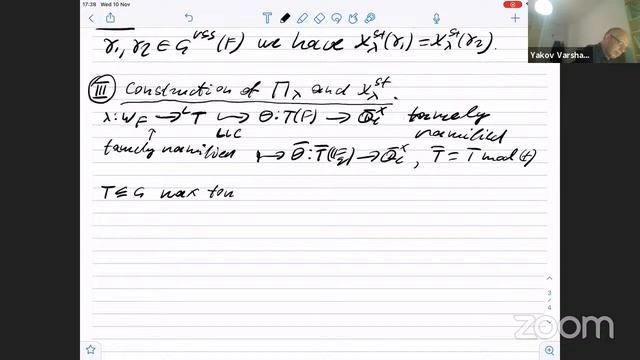 17:39 Wed 10 Nov
γ₁, γ₂ ∈ G^{vss}(F) we have χ_λ^{st}(γ₁) = χ_λ^{st}(γ₂).
III Construction of Π_λ and χ_λ^{st}.
λ: W_F → ^L T ↦ θ: T(F) → Q̄_ℓ^× tamely
LLC ramified
tamely ramified ↦ θ̄: T̄(F_q) → Q̄_ℓ^×, T̄ = T mod (t)
T ⊆ G max tor
Yakov Varsha...
3
4
zoom